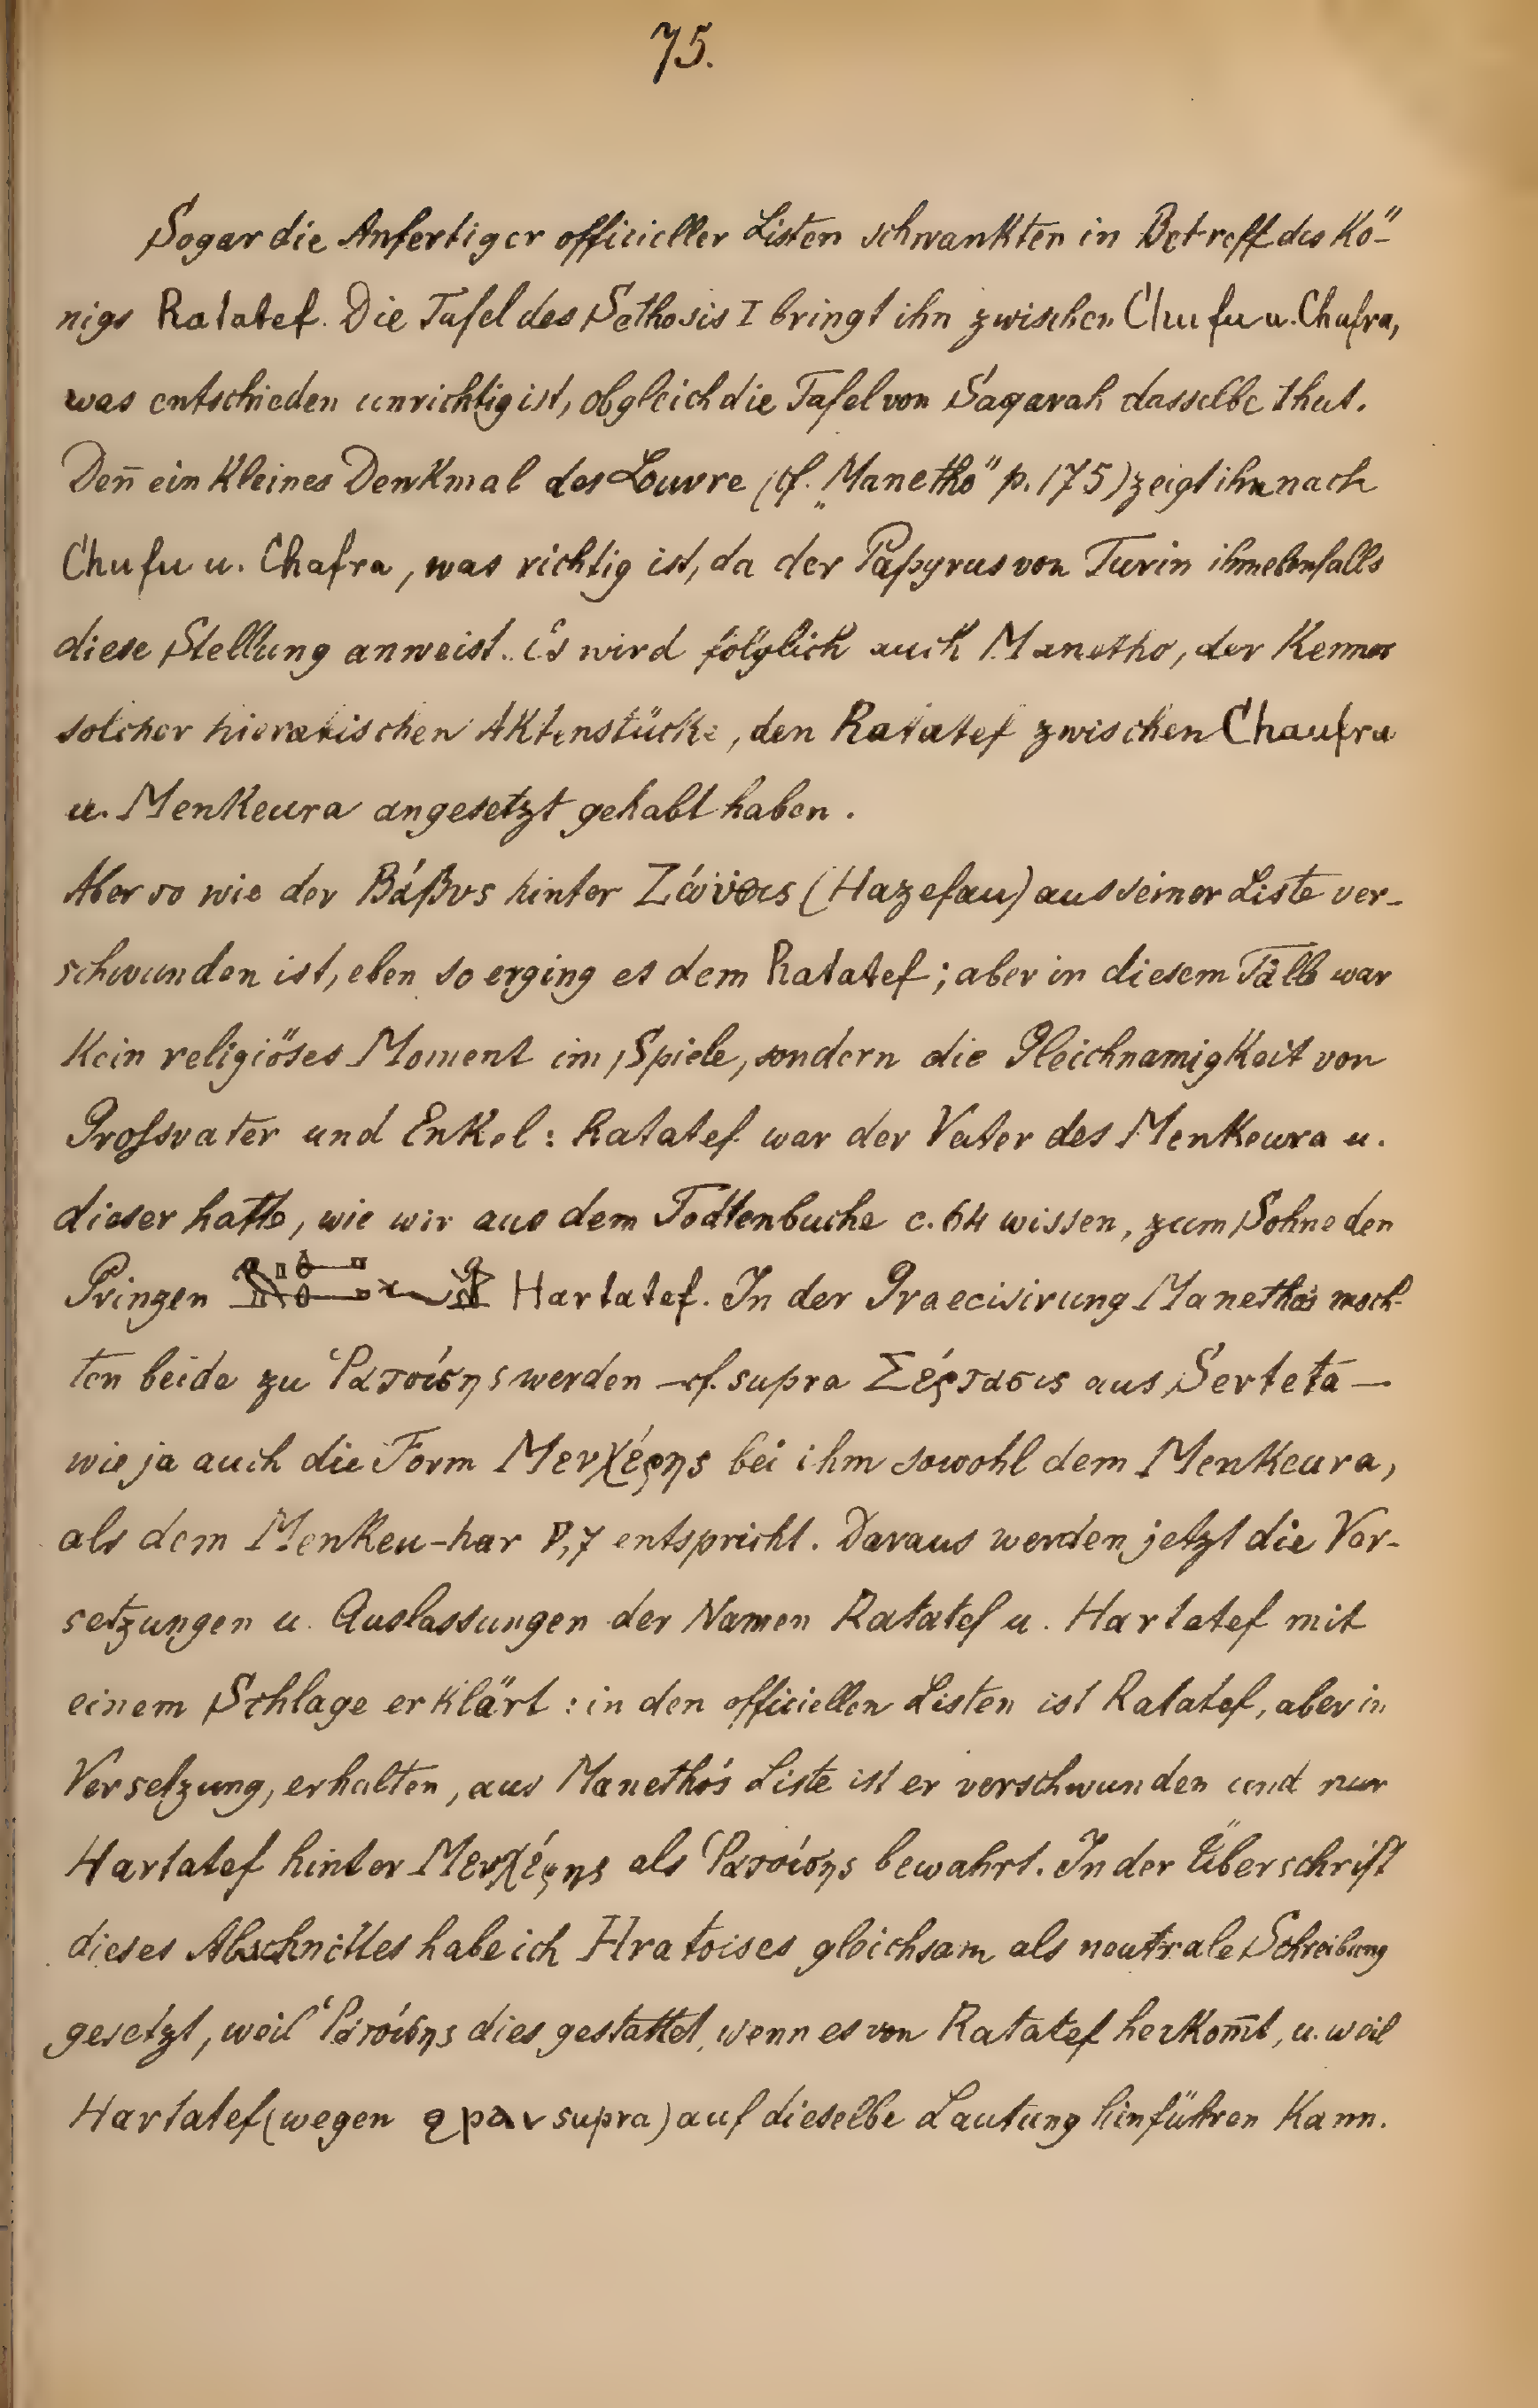 75.
Sogar die Anfertiger officieller Listen schwankten in Betreff des Kö-
nigs Ratatef. Die Tafel des Sethosis I bringt ihn zwischen Chufu u. Chafra,
was entschieden unrichtig ist, obgleich die Tafel von Saqarah dasselbe thut.
Den̄ ein kleines Denkmal des Louvre (cf. „Manetho" p. 175) zeigt ihn nach
Chufu u. Chafra, was richtig ist, da der Papyrus von Turin ihm ebenfalls
diese Stellung anweist. Es wird folglich auch Manetho, der Kenner
solcher hieratischen Aktenstücke, den Ratatef zwischen Chaufra
u. Menkeura angesetzt gehabt haben.
Aber so wie der Βάβυς hinter (Hazefau) aus seiner Liste ver-
schwunden ist, eben so erging es dem Ratatef; aber in diesem Falle war
kein religiöses Moment im Spiele, sondern die Gleichnamigkeit von
Grofsvater und Enkel: Ratatef war der Vater des Menkeura u.
dieser hatte, wie wir aus dem Todtenbuche c. 64 wissen, zum Sohne den
Prinzen Hartatef. In der Praecisirung Manetho's moch-
ten beide zu Ῥατοίσης werden — cf. supra Σέρτασις aus Serteta —
wie ja auch die Form Μενχέρης bei ihm sowohl dem Menkeura,
als dem Menkeu-har V,7 entspricht. Daraus werden jetzt die Ver-
setzungen u. Auslassungen der Namen Ratatef u. Hartatef mit
einem Schlage erklärt: in den officiellen Listen ist Ratatef, aber in
Versetzung, erhalten, aus Manetho's Liste ist er verschwunden und nur
Hartatef hinter Μενχέρης als Ῥατοίσης bewahrt. In der Überschrift
dieses Abschnittes habe ich Hratoises gleichsam als neutrale Schreibung
gesetzt, weil Ῥατοίσης dies gestattet, wenn es von Ratatef herkom̄t, u. weil
Hartatef (wegen supra) auf dieselbe Lautung hinführen kann.